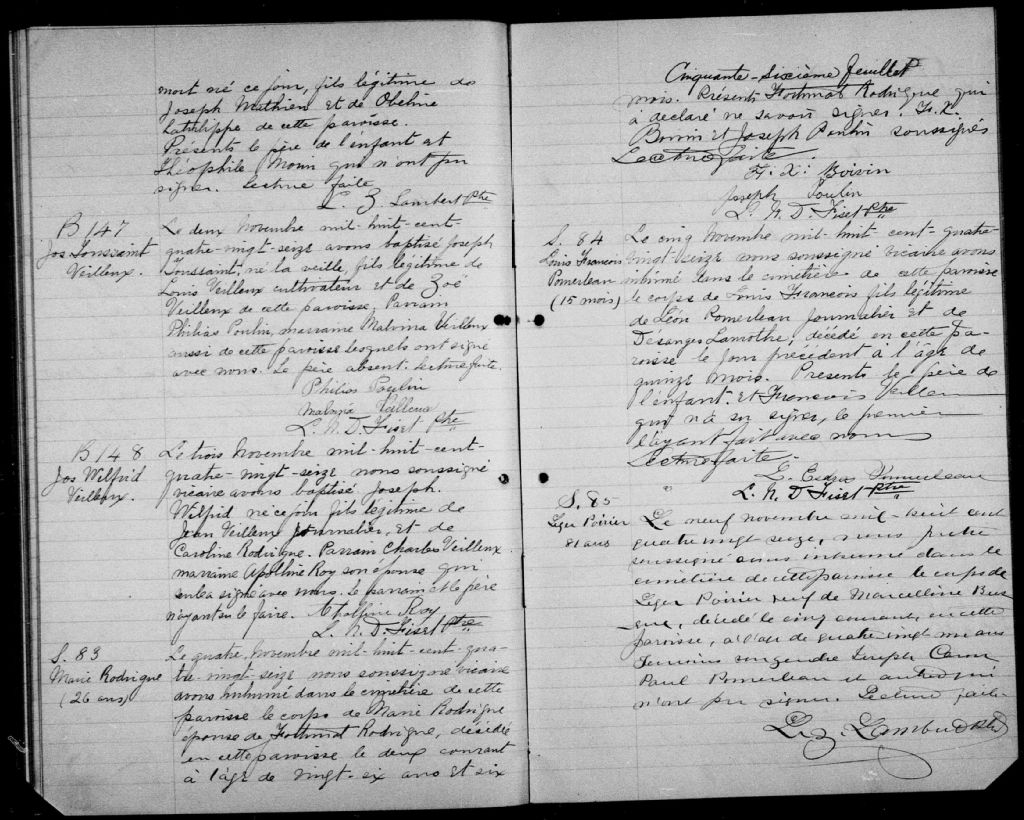 mort né ce jour, fils légitime de
Joseph Mathieu et de Obeline
Labilippe de cette paroisse.
Présents le père de l'enfant et
Théophile Morin qui n'ont pu
signer. Lecture faite
L. Z. Lambert Ptre
B 147
Jos Toussaint
Veilleux.
Le deux Novembre mil-huit-cent-
quatre-vingt-seize avons baptisé Joseph
Toussaint, né la veille, fils légitime de
Louis Veilleux cultivateur et de Zoé
Veilleux de cette paroisse. Parrain
Philias Poulin, marraine Malvina Veilleux
aussi de cette paroisse lesquels ont signé
avec nous. Le père absent. Lecture faite.
Philias Poulin
Malvina Veilleux
L. N. D. Fiset Ptre
B 148
Jos Wilfrid
Veilleux.
Le trois Novembre mil-huit-cent-
quatre-vingt-seize nous soussigné
vicaire avons baptisé Joseph
Wilfrid né ce jour fils légitime de
Jean Veilleux Journalier et de
Caroline Rodrigue. Parrain Charles Veilleux
marraine Apolline Roy son épouse qui
seule a signé avec nous. Le parrain et le père
n'ayant su le faire. Apolline Roy
L. N. D. Fiset Ptre
S. 83
Marie Rodrigue
(26 ans)
Le quatre Novembre mil-huit-cent-qua-
tre-vingt-seize nous soussigné vicaire
avons inhumé dans le cimetière de cette
paroisse le corps de Marie Rodrigue
épouse de Fortunat Rodrigue, décédée
en cette paroisse le deux courant
à l'âge de vingt-six ans et six
Cinquante-Sixième feuillet
mois. Présents Fortunat Rodrigue qui
a déclaré ne savoir signer. F. X.
Boivin et Joseph Poulin soussignés
Lecture faite.
F. X. Boivin
Joseph Poulin
L. N. D. Fiset Ptre
S. 84
Louis François
Pomerleau
(15 mois)
Le cinq Novembre mil-huit-cent-quatre-
vingt-seize nous soussigné vicaire avons
inhumé dans le cimetière de cette paroisse
le corps de Louis François fils légitime
de Léon Pomerleau Journalier et de
Désanges Lamothe, décédé en cette pa-
roisse le jour précédent à l'âge de
quinze mois. Présents le père de
l'enfant et François
qui n'a su signer, le premier
l'ayant fait avec nous
Lecture faite.
Pomerleau
L. N. D Fiset Ptre
S. 85
Léger Poirier
81 ans
Le neuf novembre mil-huit cent
quatre vingt seize, nous prêtre
soussigné avons inhumé dans le
cimetière de cette paroisse le corps de
Léger Poirier veuf de Marcelline Bus
que, décédé le cinq courant, en cette
paroisse, à l'âge de quatre vingt un ans
Témoins son gendre Joseph Caron
Paul Pomerleau et autres qui
n'ont pu signer. Lecture faite.
L. Z. Lambert Ptre